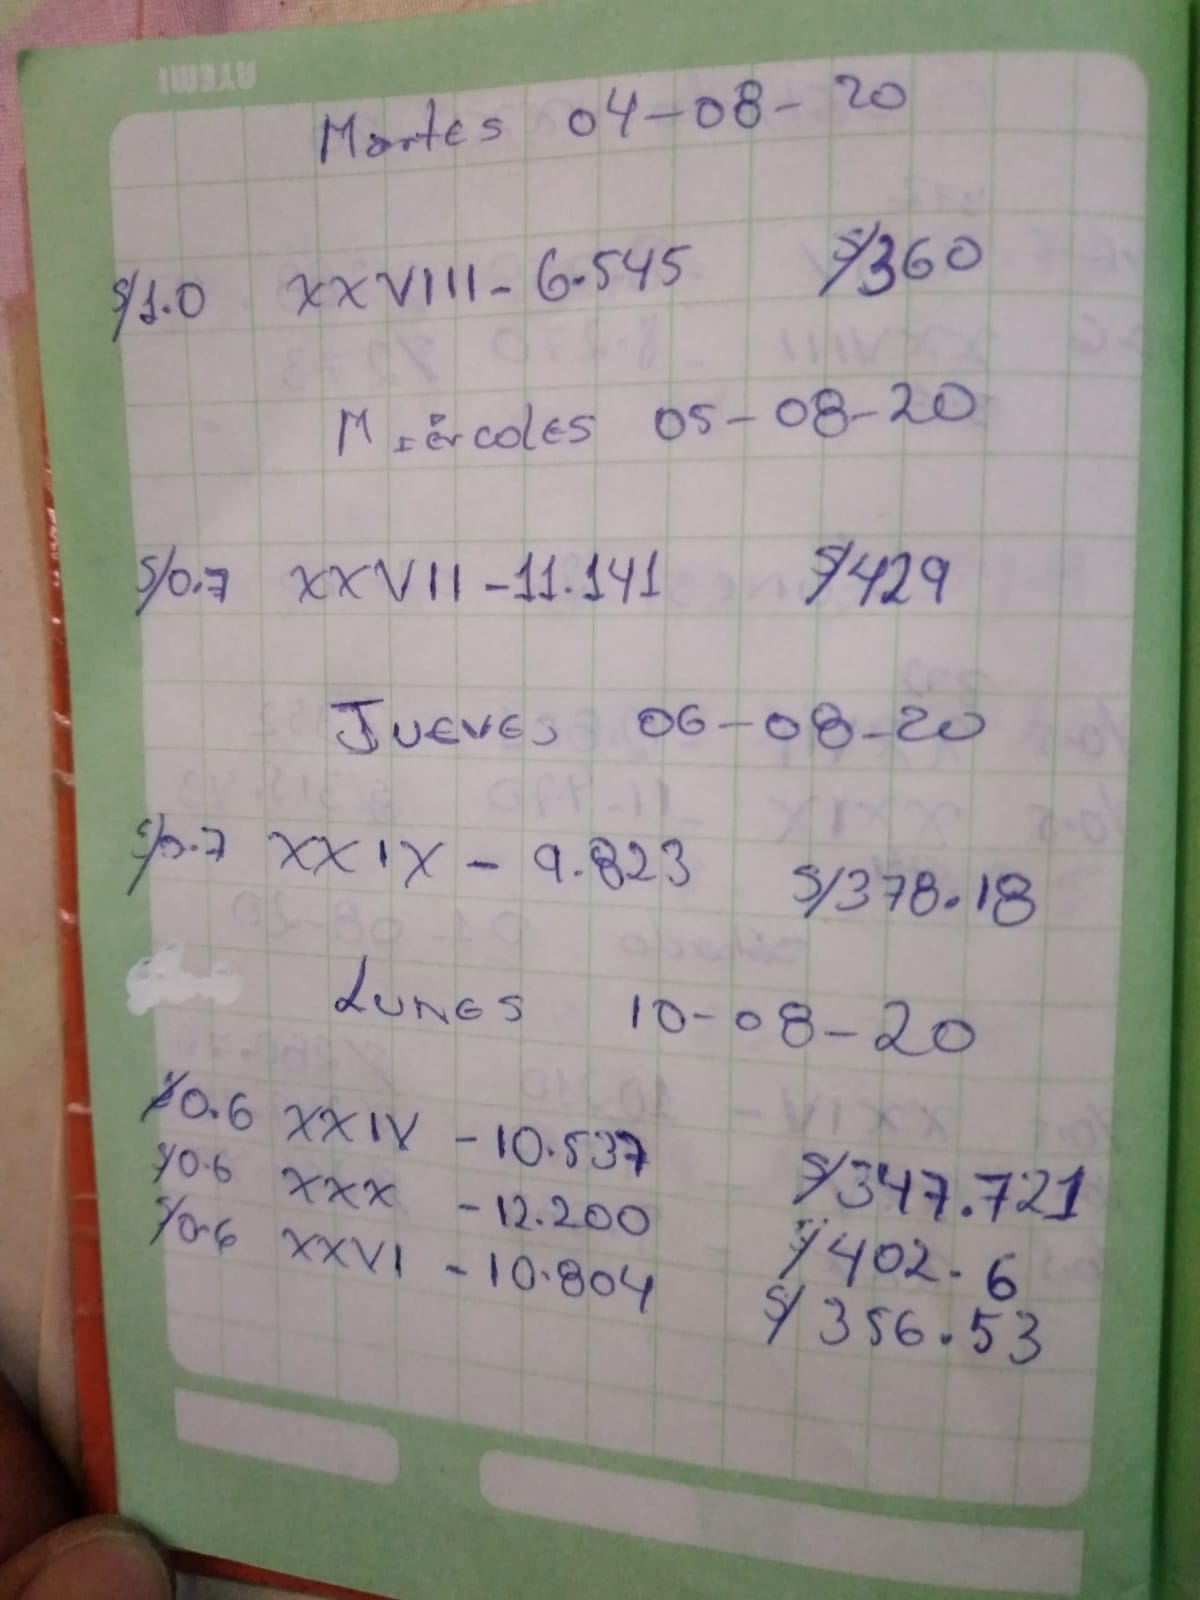 AYEMI
Martes 04-08-20
S/1.0 XXVIII - 6.545 S/360
Miércoles 05-08-20
S/0.7 XXVII - 11.141 S/429
Jueves 06-08-20
S/0.7 XXIX - 9.823 S/378.18
Lunes 10-08-20
S/0.6 XXIV - 10.537 S/347.721
S/0.6 XXX - 12.200 S/402.6
S/0.6 XXVI - 10.804 S/356.53